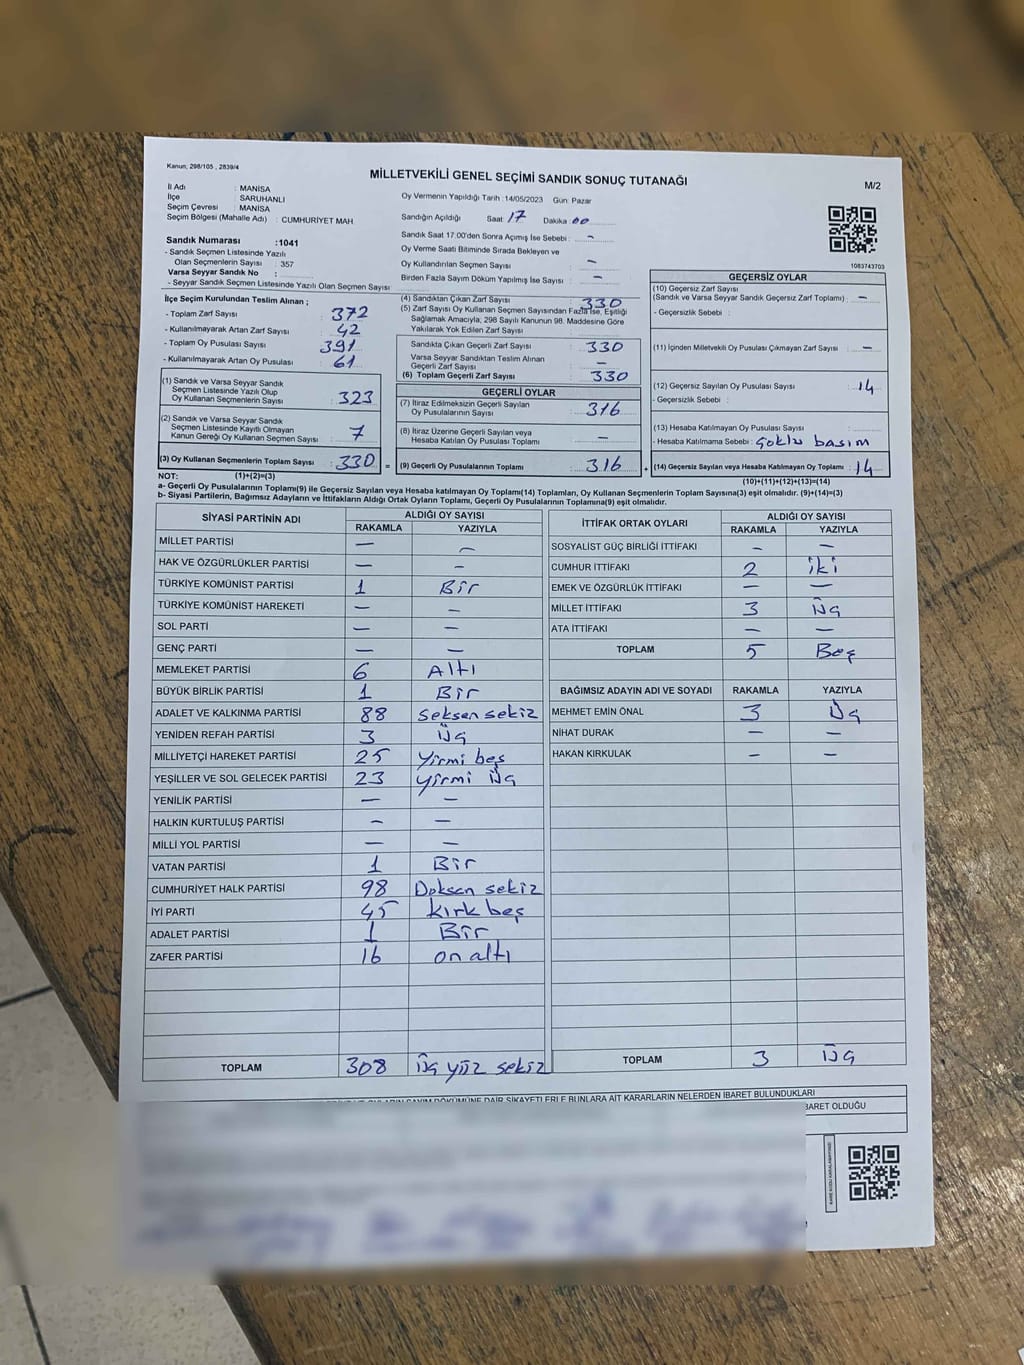 Kanun; 298/105 , 2839/4
MİLLETVEKİLİ GENEL SEÇİMİ SANDIK SONUÇ TUTANAĞI
M/2
İl Adı : MANİSA
İlçe SARUHANLI
Seçim Çevresi : MANİSA
Seçim Bölgesi (Mahalle Adı) : CUMHURİYET MAH.
Oy Vermenin Yapıldığı Tarih :14/05/2023 Gün: Pazar
Sandığın Açıldığı Saat: 17 Dakika: 00
Sandık Saat 17:00'den Sonra Açımış İse Sebebi : -
Oy Verme Saati Bitiminde Sırada Bekleyen ve
Oy Kullandırılan Seçmen Sayısı : -
Birden Fazla Sayım Döküm Yapılmış İse Sayısı : -
1083743703
Sandık Numarası :1041
- Sandık Seçmen Listesinde Yazılı
Olan Seçmenlerin Sayısı : 357
Varsa Seyyar Sandık No :
- Seyyar Sandık Seçmen Listesinde Yazılı Olan Seçmen Sayısı
İlçe Seçim Kurulundan Teslim Alınan ;
- Toplam Zarf Sayısı : 372
- Kullanılmayarak Artan Zarf Sayısı : 42
- Toplam Oy Pusulası Sayısı : 391
- Kullanılmayarak Artan Oy Pusulası : 61
(1) Sandık ve Varsa Seyyar Sandık
Seçmen Listesinde Yazılı Olup
Oy Kullanan Seçmenlerin Sayısı : 323
(2) Sandık ve Varsa Seyyar Sandık
Seçmen Listesinde Kayıtlı Olmayan
Kanun Gereği Oy Kullanan Seçmen Sayısı : 7
(3) Oy Kullanan Seçmenlerin Toplam Sayısı : 330 =
(1)+(2)=(3)
(4) Sandıktan Çıkan Zarf Sayısı : 330
(5) Zarf Sayısı Oy Kullanan Seçmen Sayısından Fazla İse, Eşitliği
Sağlamak Amacıyla; 298 Sayılı Kanunun 98. Maddesine Göre
Yakılarak Yok Edilen Zarf Sayısı :
Sandıkta Çıkan Geçerli Zarf Sayısı : 330
Varsa Seyyar Sandıktan Teslim Alınan
Geçerli Zarf Sayısı : -
(6) Toplam Geçerli Zarf Sayısı : 330
GEÇERLİ OYLAR
(7) İtiraz Edilmeksizin Geçerli Sayılan
Oy Pusulalarının Sayısı : 316
(8) İtiraz Üzerine Geçerli Sayılan veya
Hesaba Katılan Oy Pusulası Toplamı : -
(9) Geçerli Oy Pusulalarının Toplamı : 316 +
GEÇERSİZ OYLAR
(10) Geçersiz Zarf Sayısı
(Sandık ve Varsa Seyyar Sandık Geçersiz Zarf Toplamı) : -
- Geçersizlik Sebebi :
(11) İçinden Milletvekili Oy Pusulası Çıkmayan Zarf Sayısı : -
(12) Geçersiz Sayılan Oy Pusulası Sayısı : 14
- Geçersizlik Sebebi :
(13) Hesaba Katılmayan Oy Pusulası Sayısı :
- Hesaba Katılmama Sebebi : Çoklu basım
(14) Geçersiz Sayılan veya Hesaba Katılmayan Oy Toplamı : 14
(10)+(11)+(12)+(13)=(14)
NOT:
a- Geçerli Oy Pusulalarının Toplamı(9) ile Geçersiz Sayılan veya Hesaba katılmayan Oy Toplamı(14) Toplamları, Oy Kullanan Seçmenlerin Toplam Sayısına(3) eşit olmalıdır. (9)+(14)=(3)
b- Siyasi Partilerin, Bağımsız Adayların ve İttifakların Aldığı Ortak Oyların Toplamı, Geçerli Oy Pusulalarının Toplamına(9) eşit olmalıdır.
SİYASİ PARTİNİN ADI ALDIĞI OY SAYISI
RAKAMLA YAZIYLA
MİLLET PARTİSİ - -
HAK VE ÖZGÜRLÜKLER PARTİSİ - -
TÜRKİYE KOMÜNİST PARTİSİ 1 Bir
TÜRKİYE KOMÜNİST HAREKETİ - -
SOL PARTİ - -
GENÇ PARTİ - -
MEMLEKET PARTİSİ 6 Altı
BÜYÜK BİRLİK PARTİSİ 1 Bir
ADALET VE KALKINMA PARTİSİ 88 Seksen sekiz
YENİDEN REFAH PARTİSİ 3 Üç
MİLLİYETÇİ HAREKET PARTİSİ 25 Yirmi beş
YEŞİLLER VE SOL GELECEK PARTİSİ 23 yirmi Üç
YENİLİK PARTİSİ - -
HALKIN KURTULUŞ PARTİSİ - -
MİLLİ YOL PARTİSİ - -
VATAN PARTİSİ 1 Bir
CUMHURİYET HALK PARTİSİ 98 Doksen sekiz
İYİ PARTİ 45 kırk beş
ADALET PARTİSİ 1 Bir
ZAFER PARTİSİ 16 on altı
TOPLAM 308 Üç yüz sekiz
İTTİFAK ORTAK OYLARI ALDIĞI OY SAYISI
RAKAMLA YAZIYLA
SOSYALİST GÜÇ BİRLİĞİ İTTİFAKI - -
CUMHUR İTTİFAKI 2 iki
EMEK VE ÖZGÜRLÜK İTTİFAKI - -
MİLLET İTTİFAKI 3 Üç
ATA İTTİFAKI - -
TOPLAM 5 Beş
BAĞIMSIZ ADAYIN ADI VE SOYADI RAKAMLA YAZIYLA
MEHMET EMİN ÖNAL 3 Üç
NİHAT DURAK - -
HAKAN KIRKULAK - -
TOPLAM 3 Üç
DAİR ŞİKAYETLERLE BUNLARA AİT KARARLARIN NELERDEN İBARET BULUNDUKLARI
BARET OLDUĞU